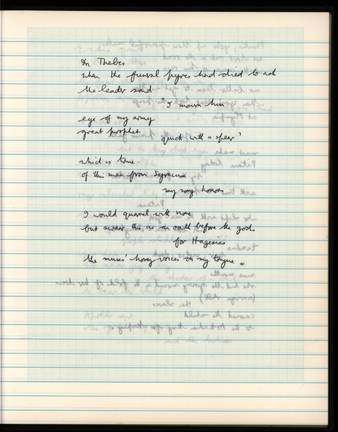 In Thebes
when the funeral pyres had died to ash
the leader said
"I mourn him
eye of my army
great prophet
quick with a spear"
which is true
of the man from Syracuse
my song honors
I would quarrel with none
but swear this, as an oath before the gods
for Hagesias
the muses' honey voices on my tongue.